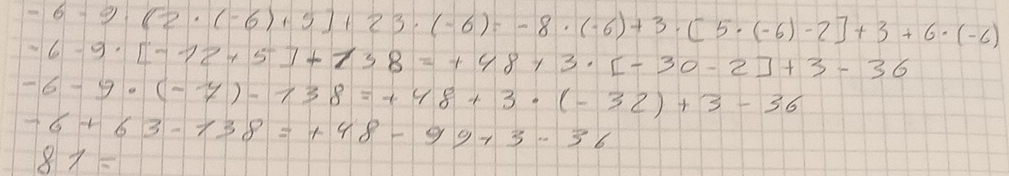 -6 - 9 · [2 · (-6) + 5] + 23 · (-6) = -8 · (-6) + 3 · [5 · (-6) - 2] + 3 + 6 · (-6)
-6 - 9 · [-12 + 5] + 138 = +48 + 3 · [-30 - 2] + 3 - 36
-6 - 9 · (-7) - 138 = +48 + 3 · (-32) + 3 - 36
-6 + 63 - 138 = +48 - 99 + 3 - 36
81 =